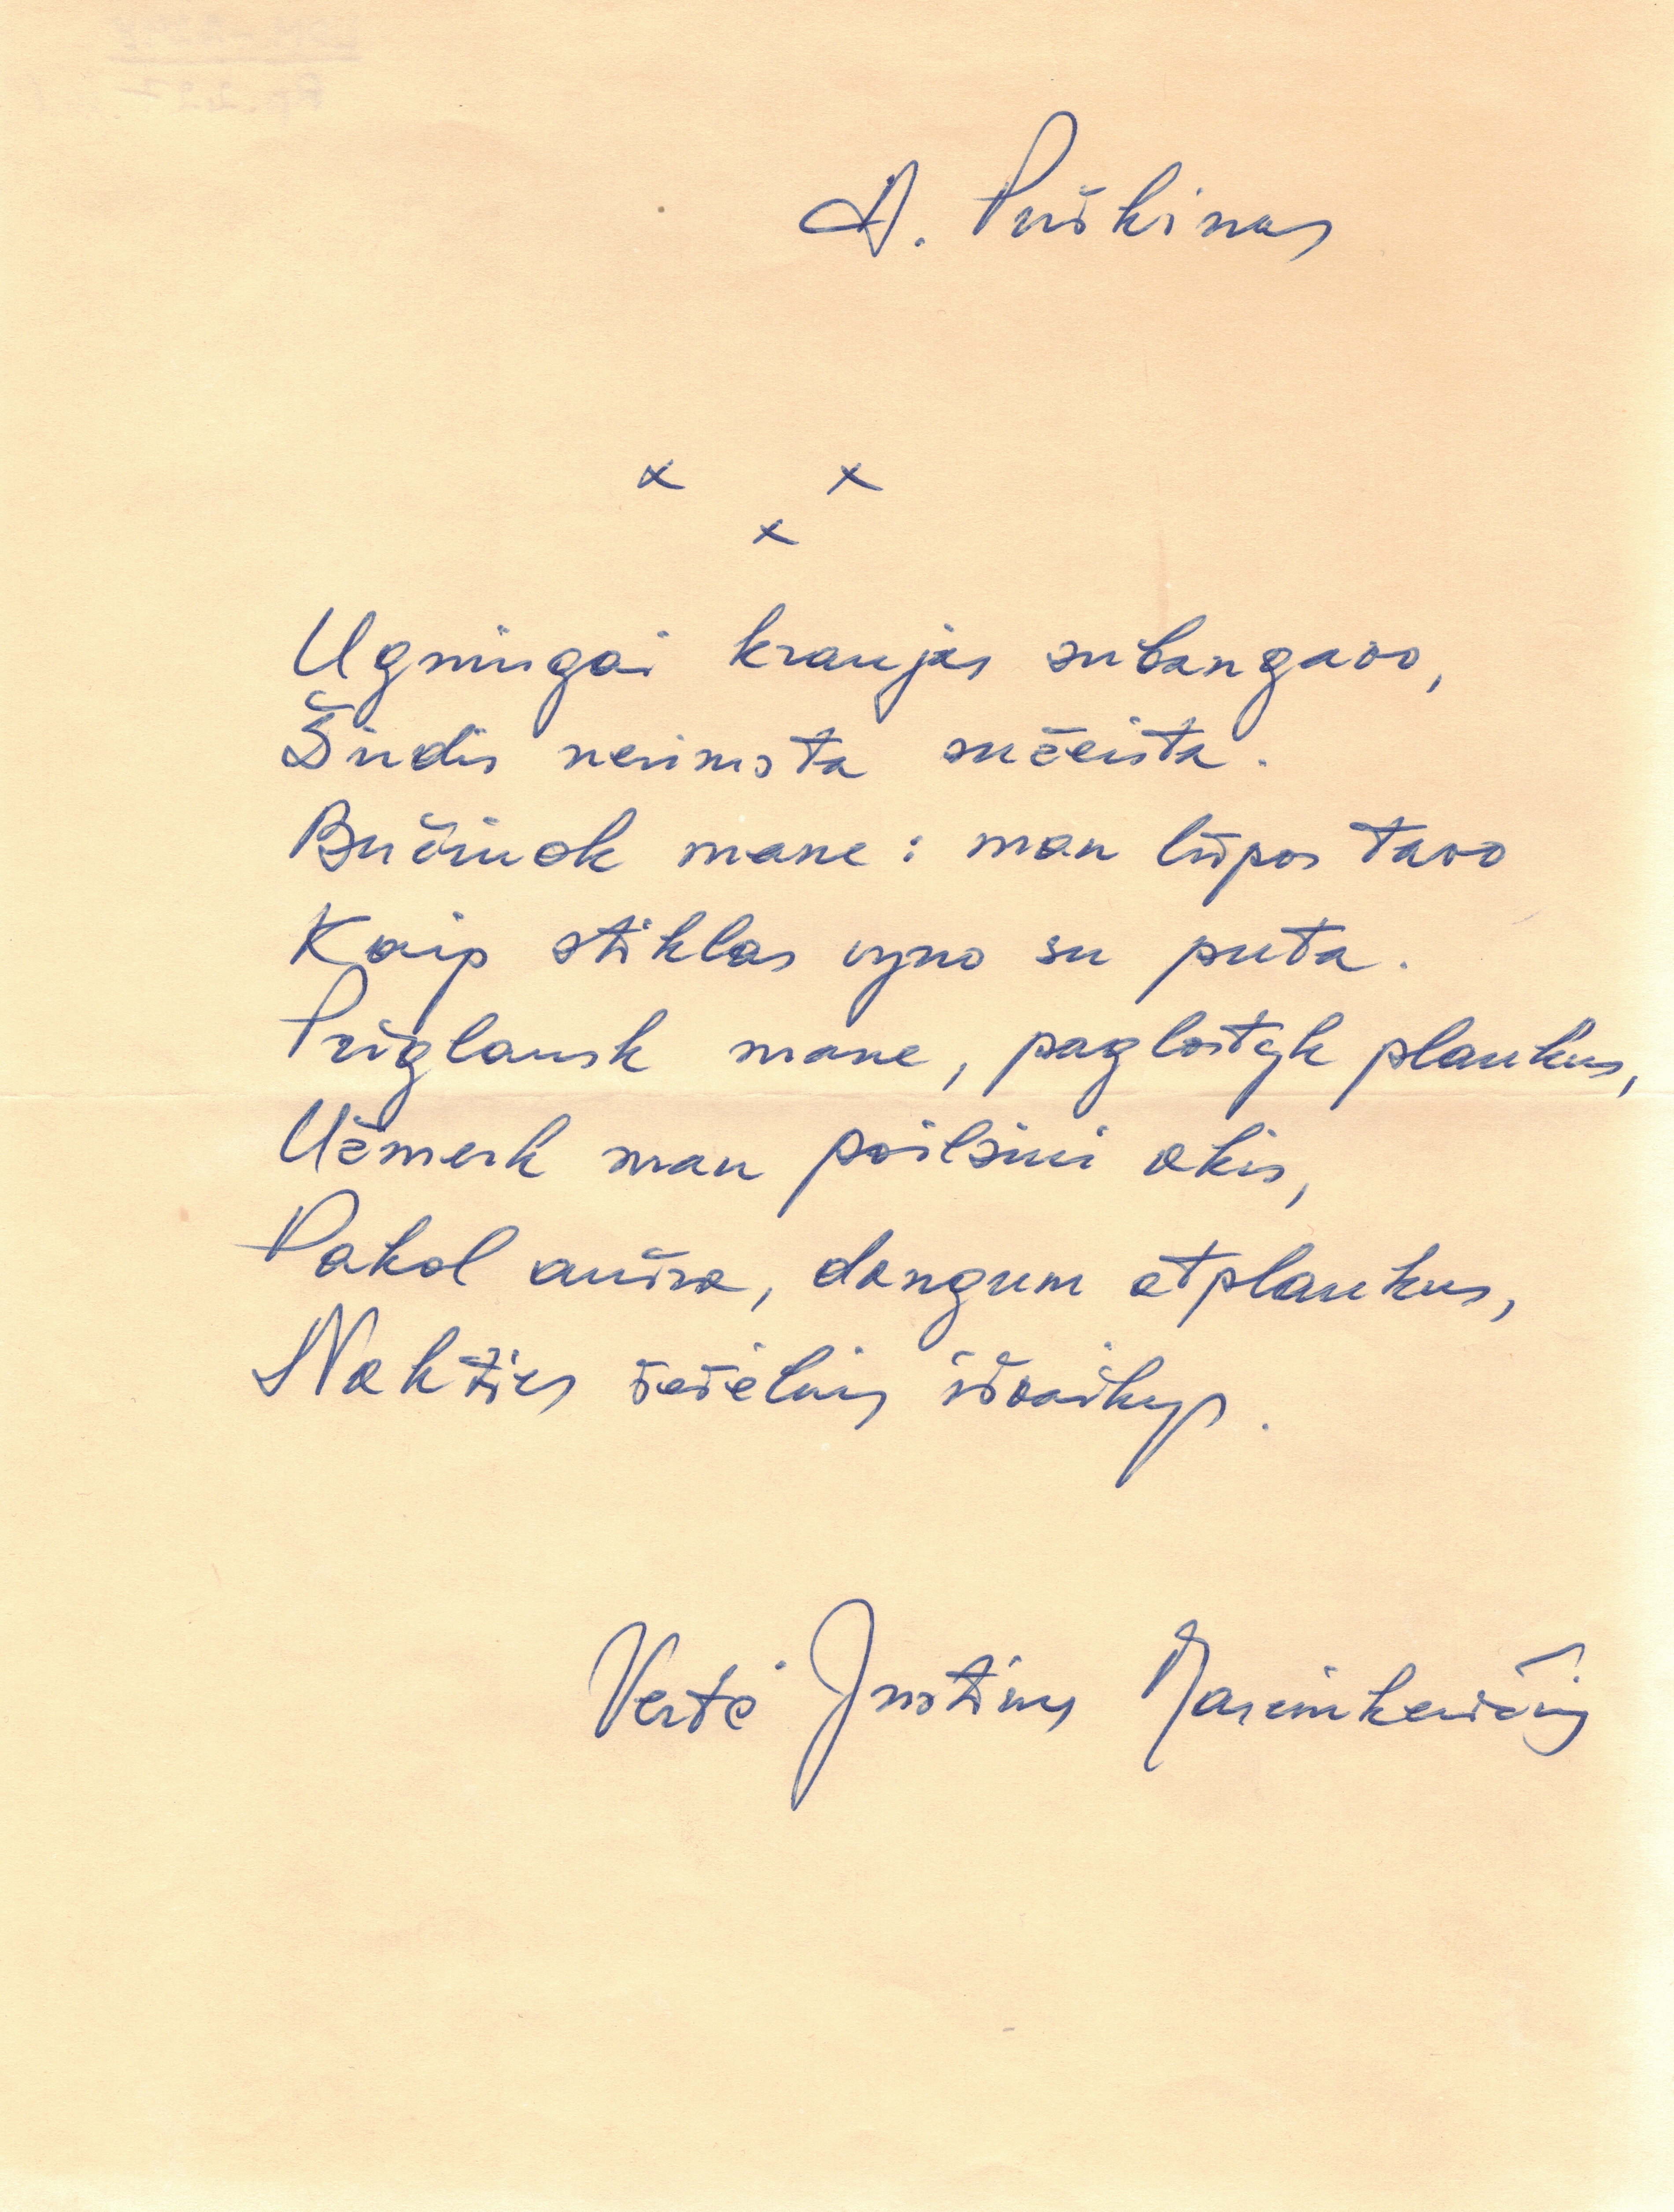 A. Puškinas
x x
x
Ugningai kraujas subangavo,
Širdis nerimsta sužeista.
Bučiuok mane: man lūpos tavo
Kaip stiklas vyno su puta.
Priglausk mane, paglostyk plaukus,
Užmerk man poilsiui akis,
Pakol aušra, dangum atplaukus,
Nakties šešėlius išvaikys.
Vertė Justinas Marcinkevičius